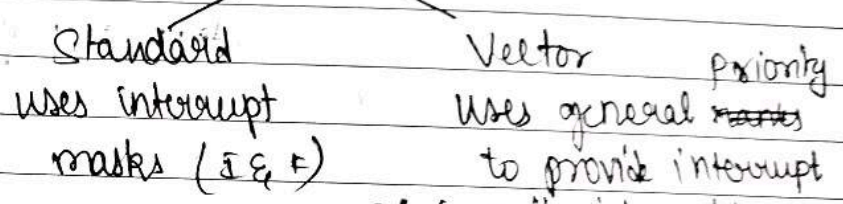 Standard
uses interrupt
masks (I & F)
Vector
uses general priority
to provide interrupt